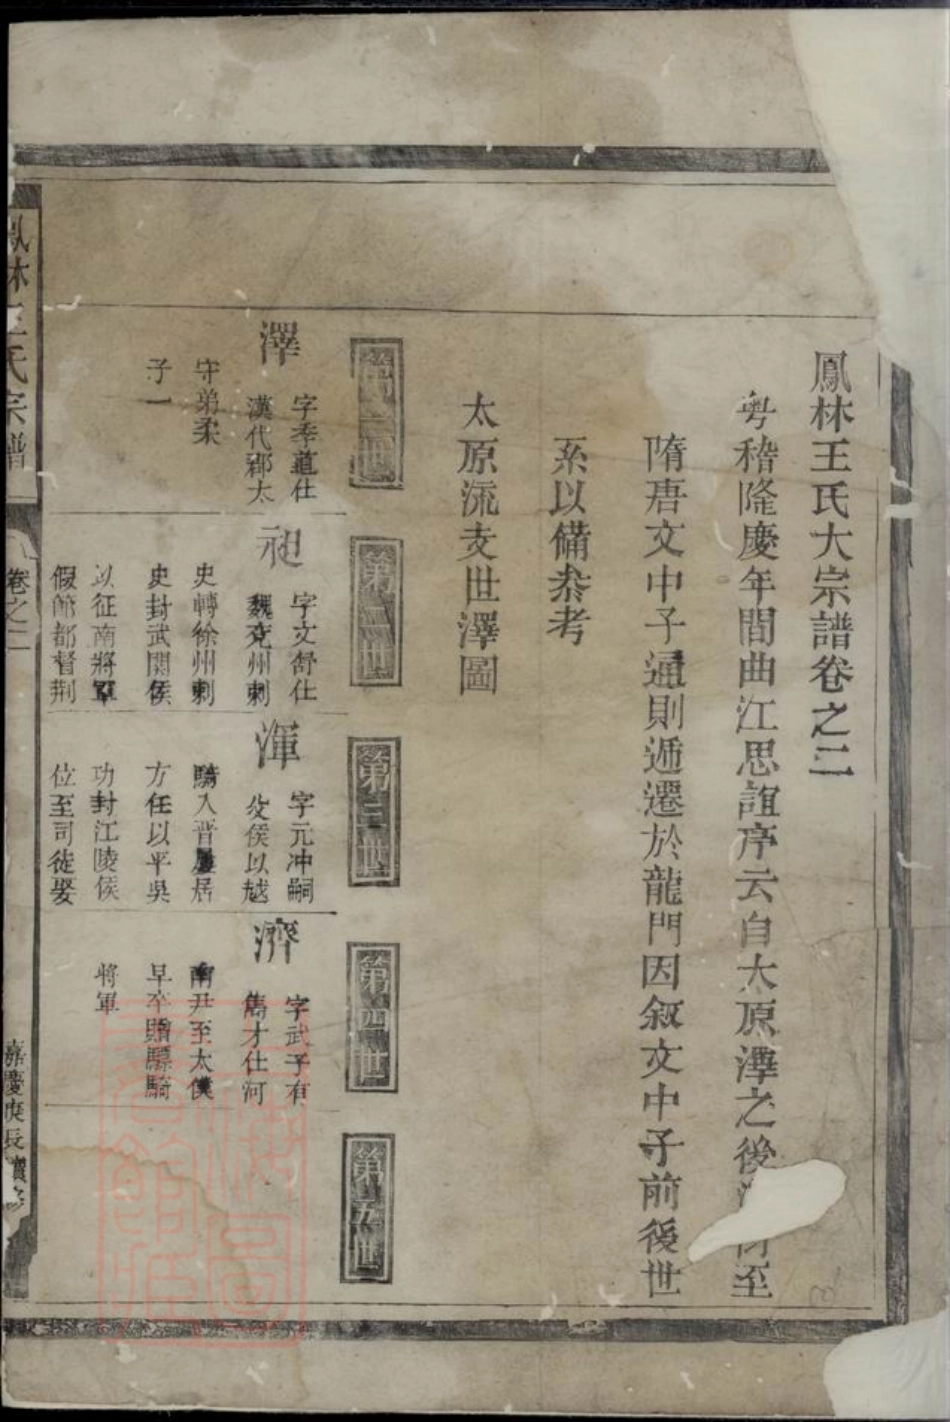 鳳林王氏大宗譜卷之二
粤稽隆慶年間曲江思誼序云自太原澤之後至
隋唐文中子通則遞遷於龍門因叙文中子前後世
系以備叅考
太原流支世澤圖
第一世
澤
字季道仕
漢代郡太
守弟柔
子一
第二世
昶
字文舒仕
魏兖州刺
史轉徐州刺
史封武關侯
以征南將軍
假節都督荆
第三世
渾
字元冲嗣
父侯以越
騎入晋屢居
方任以平吳
功封江陵侯
位至司徒娶
第四世
濟
字武子有
雋才仕河
南尹至太僕
早卒贈驃騎
將軍
第五世
鳳林王氏宗譜
卷之二
嘉慶庚長續修